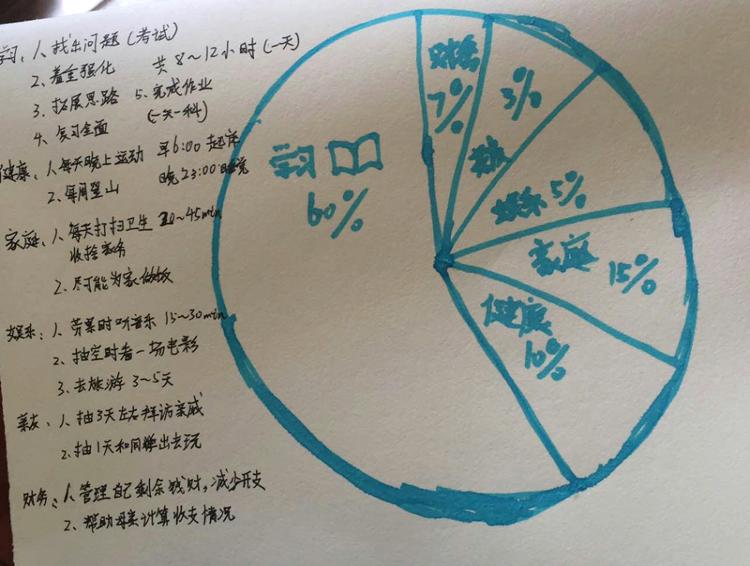 学习、1、找出问题(考试)
2、着重强化 共8~12小时(一天)
3、拓展思路 5、完成作业
4、复习全面 (一天一科)
健康、1、每天晚上运动 早6:00起床
2、每周登山 晚23:00睡觉
家庭、1、每天打扫卫生 30~45min
收拾家务
2、尽可能为家做饭
娱乐:1、劳累时听音乐 15~30min
2、抽空时看一场电影
3、去旅游 3~5天
亲友、1、抽3天左右拜访亲戚
2、抽1天和同学出去玩
财务、1、管理自己剩余钱财,减少开支
2、帮助母亲计算收支情况
学习
60%
财务
7%
3%
娱乐 5%
家庭 15%
健康
10%